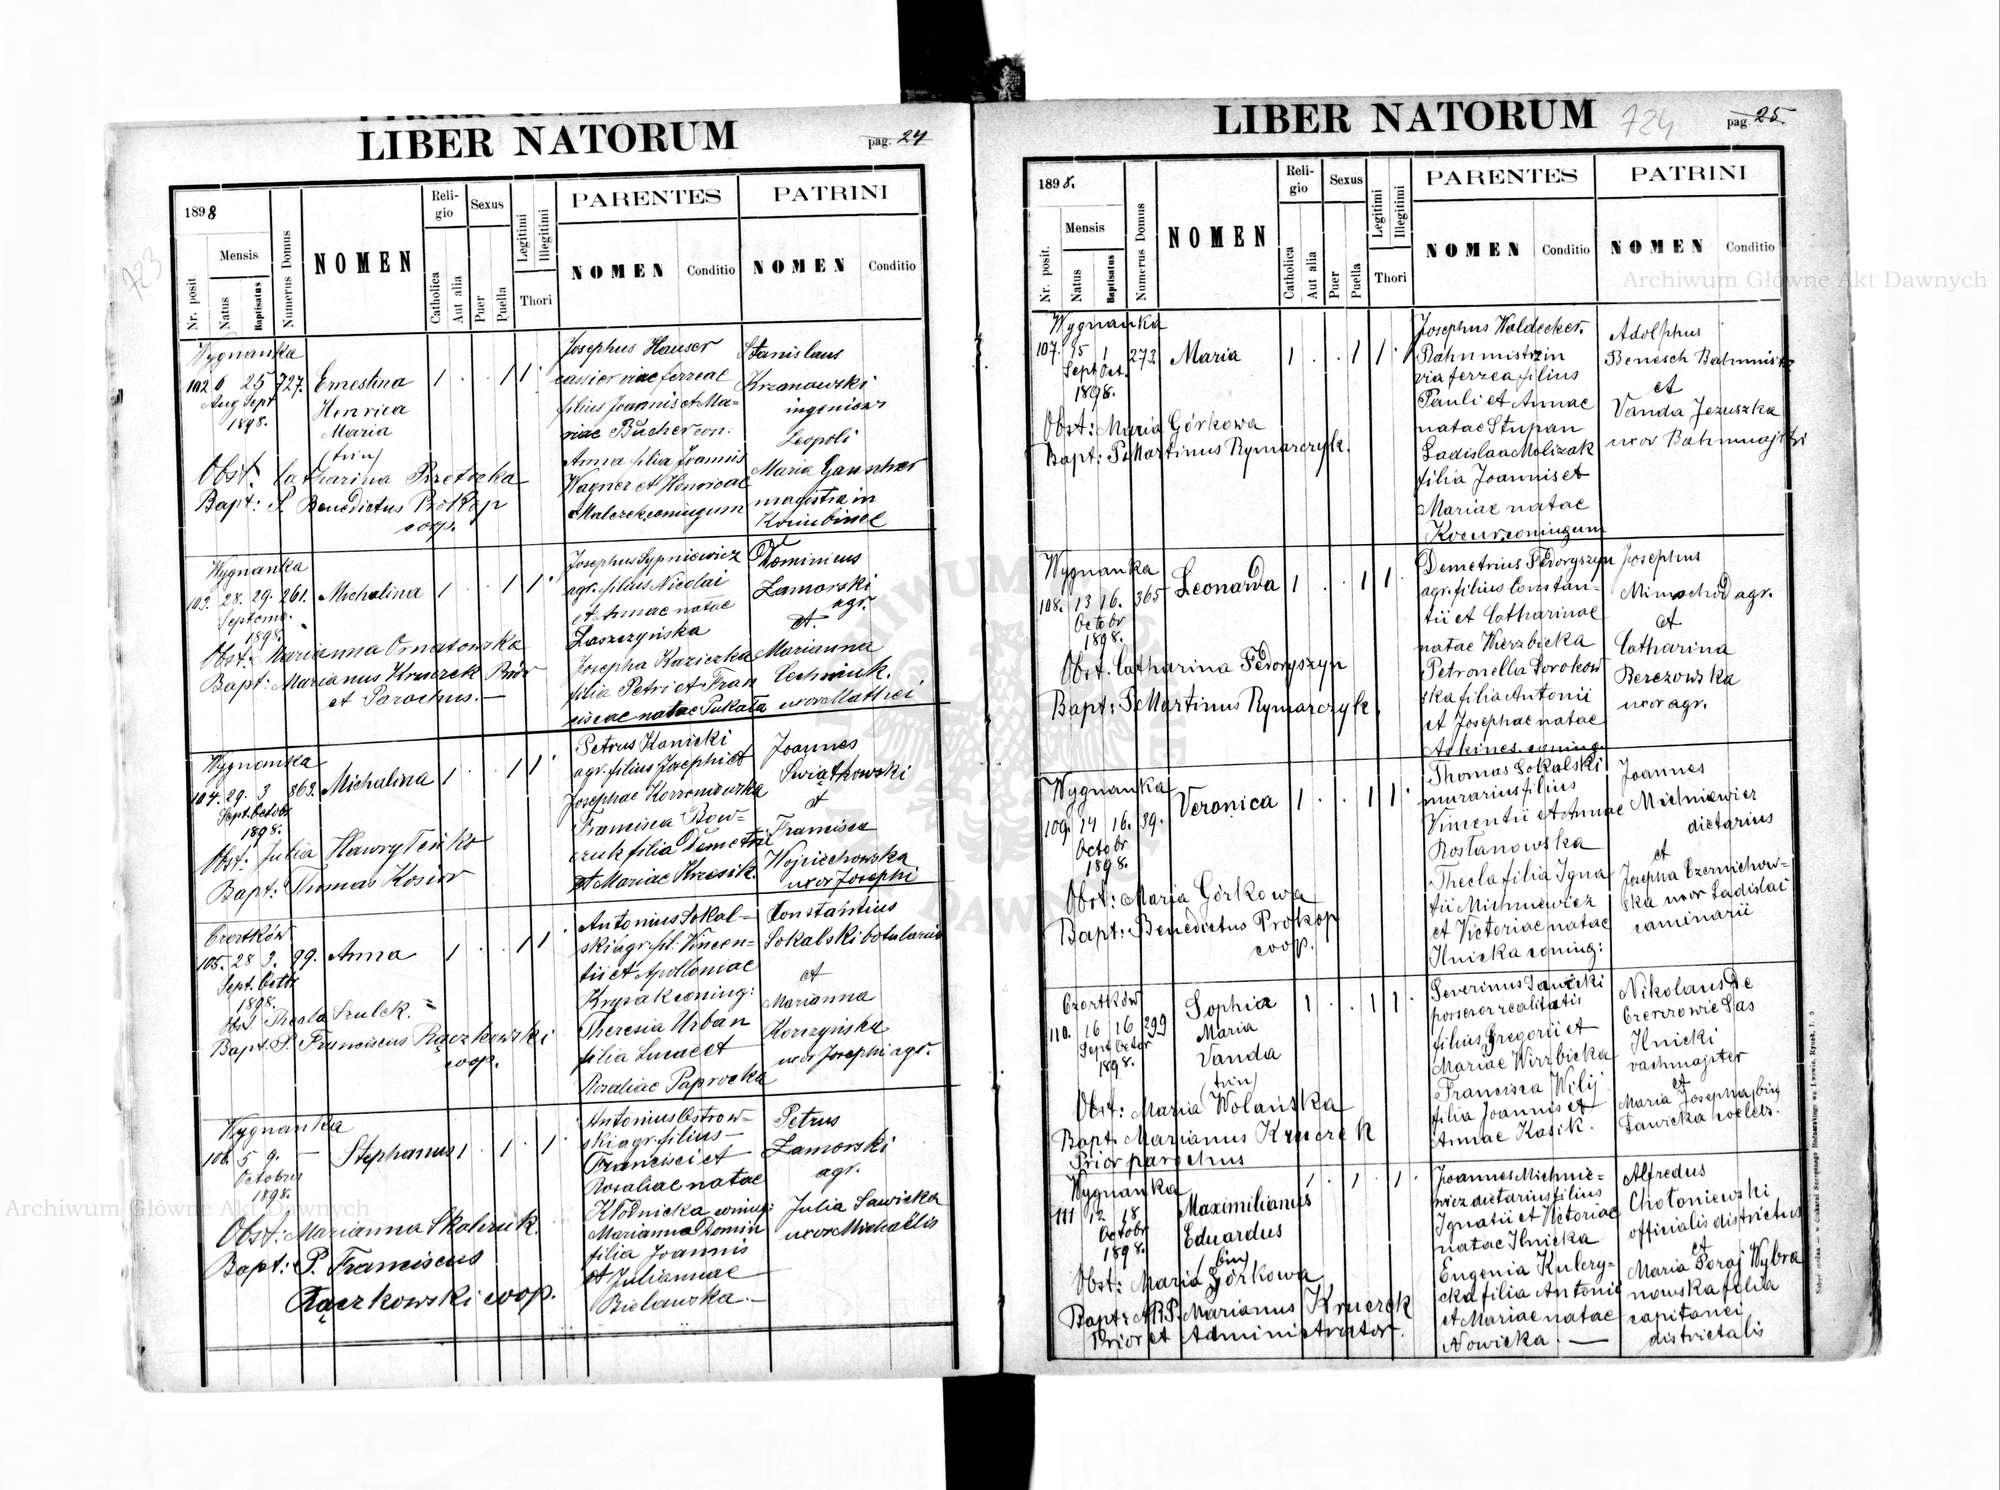 LIBER NATORUM
pag. 24
1898
Nr. posit.
Mensis
Natus
Baptisatus
Numerus Domus
NOMEN
Religio
Catholica
Aut alia
Sexus
Puer
Puella
Legitimi
Illegitimi
Thori
PARENTES
NOMEN
Conditio
PATRINI
NOMEN
Conditio
723
Wygnanka
102 6 25 727.
Aug Sept
1898.
Ernestina
Henrica
Maria
(trin)
1 . . 1 1 .
Josephus Hauser
cassier viae ferreae
filius Joannis et Ma-
riae Bucher con.
Anna filia Joannis
Wagner et Henricae
Malczek coniugum
Stanislaus
Krzanowski
ingenieur
Leopoli
Maria
magistra in
Obst. Catharina
Bapt: P. Benedictus Prokop
coop.
Wygnanka
103. 28. 29. 261.
Septemb.
1898.
Michalina
1 . . 1 1 .
Josephus Sypniewicz
agr. filius Nicolai
et Annae natae
Laszczyńska
Josepha Kaziczka
filia Petri et Fran
ciscae natae Pukata
Dominicus
Zamorski
agr.
et
Marianna
Lechniuk.
uxor Mathei
Obst: Marianna Ornatowska
Bapt: Marianus Kruczek Prior
et Parochus. —
Wygnanka
104. 29. 3 862.
Sept. Octobr
1898.
Michalina
1 . . 1 1 .
Petrus Kanicki
agr. filius Josephi et
Josephae
Francisca Bow-
czuk filia Demetri
et Mariae Krzesik
Joannes
Swiątkowski
et
Francisca
Wojciechowska
uxor Josephi
Obst. Julia Hawrylenko
Bapt: Thomas Kosior
Czortków
105. 28 3. 99.
Sept. Octbr
1898.
Anna
1 . . 1 1 .
Antonius Sokal-
ski agr. fil: Vincen-
tii et Apolloniae
Krysak coniug:
Theresia Urban
filia Lucae et
Rozaliae Paprocka
Constantius
Sokalski botularius
et
Marianna
Korczyńska
uxor Josephi agr.
Obst. Thecla Szulek.
Bapt. P. Franciscus Rączkowski
coop.
Wygnanka
106. 5 9. —
Octobris
1898.
Stephanus
1 . 1 . 1 .
Antonius Ostrow-
ski agr. filius —
Francisci et —
Rosaliae natae
Kłodnicka coniug:
Marianna Domin
filia Joannis
et Juliannae
Bielawska. —
Petrus
Zamorski
agr.
Julia Sawicka
uxor Michaëlis
Obst: Marianna Skolimuk.
Bapt: P. Franciscus
Rączkowski coop.
LIBER NATORUM
724
pag. 25
1898.
Nr. posit.
Mensis
Natus
Baptisatus
Numerus Domus
NOMEN
Religio
Catholica
Aut alia
Sexus
Puer
Puella
Legitimi
Illegitimi
Thori
PARENTES
NOMEN
Conditio
PATRINI
NOMEN
Conditio
Wygnanka
107. 15 1 273.
Sept Oct.
1898.
Maria
1 . . 1 1 .
Josephus Waldecker.
Bahnmistrz in
via ferrea filius
Pauli et Annae
natae Stupan
Ladislaa Molizak
filia Joannis et
Mariae natae
Kocur coniugum
Adolphus
Benesch Bahnmistrz
et
Vanda Jezuszka
uxor Bahnmajstri
Obst: Maria Górkowa
Bapt: P. Martinus Rymarczyk.
Wygnanka
108. 13 16. 365
Octobr
1898.
Leonarda
1 . . 1 1 .
Demetrius Fedoryszyn
agr. filius Constan-
tii et Catharinae
natae Wierzbicka
Petronella Dorokow
ska filia Antonii
et Josephae natae
Askines. coniug.
Josephus
Mimochod agr.
et
Catharina
Berezowska
uxor agr.
Obst. Catharina Fedoryszyn
Bapt: P. Martinus Rymarczyk.
Wygnanka
109. 14 16. 39.
Octobr
1898.
Veronica
1 . . 1 1 .
Thomas Sokalski
murarius filius
Vincentii et Annae
Rostanowska
Thecla filia Igna
tii Michniewicz
et Victoriae natae
Ilnicka coniug:
Joannes
Michniewicz
dietarius
et
Josepha Czernichow-
ska uxor Ladislai
caminarii
Obst: Maria Górkowa
Bapt: Benedictus Prokop
coop.
Czortków
110. 16 16 299
Sept Octobr
1898.
Sophia
Maria
Vanda
(trin)
1 . . 1 1 .
Severinus Sawicki
possesor realitatis
filius Gregorii et
Mariae Wirzbicka
Francisca Wilij
filia Joannis et
Annae Kasik.
Nikolaus De
Czerczowie Sas
Ilnicki
vachmajster
et
Maria Josepha (bin)
Sawicka
Obst: Maria Wolańska
Bapt. Marianus Kruczek
Prior parochus
Wygnanka
111 12 18
Octobr
1898.
Maximilianus
Eduardus
(bin)
1 . 1 . 1 .
Joannes Michnie-
wicz dietarius filius
Ignatii et Victoriae
natae Ilnicka
Eugenia Kulczy-
cka filia Antonii
et Mariae natae
Nowicka. —
Alfredus
Chotoniewski
officialis districtus
et
Maria Poraj Wybra
nowska filia
capitanei
districtalis
Obst: Maria Górkowa
Bapt: A.R.P. Marianus Kruczek
Prior et Administrator.
Archiwum Główne Akt Dawnych
Archiwum Główne Akt Dawnych